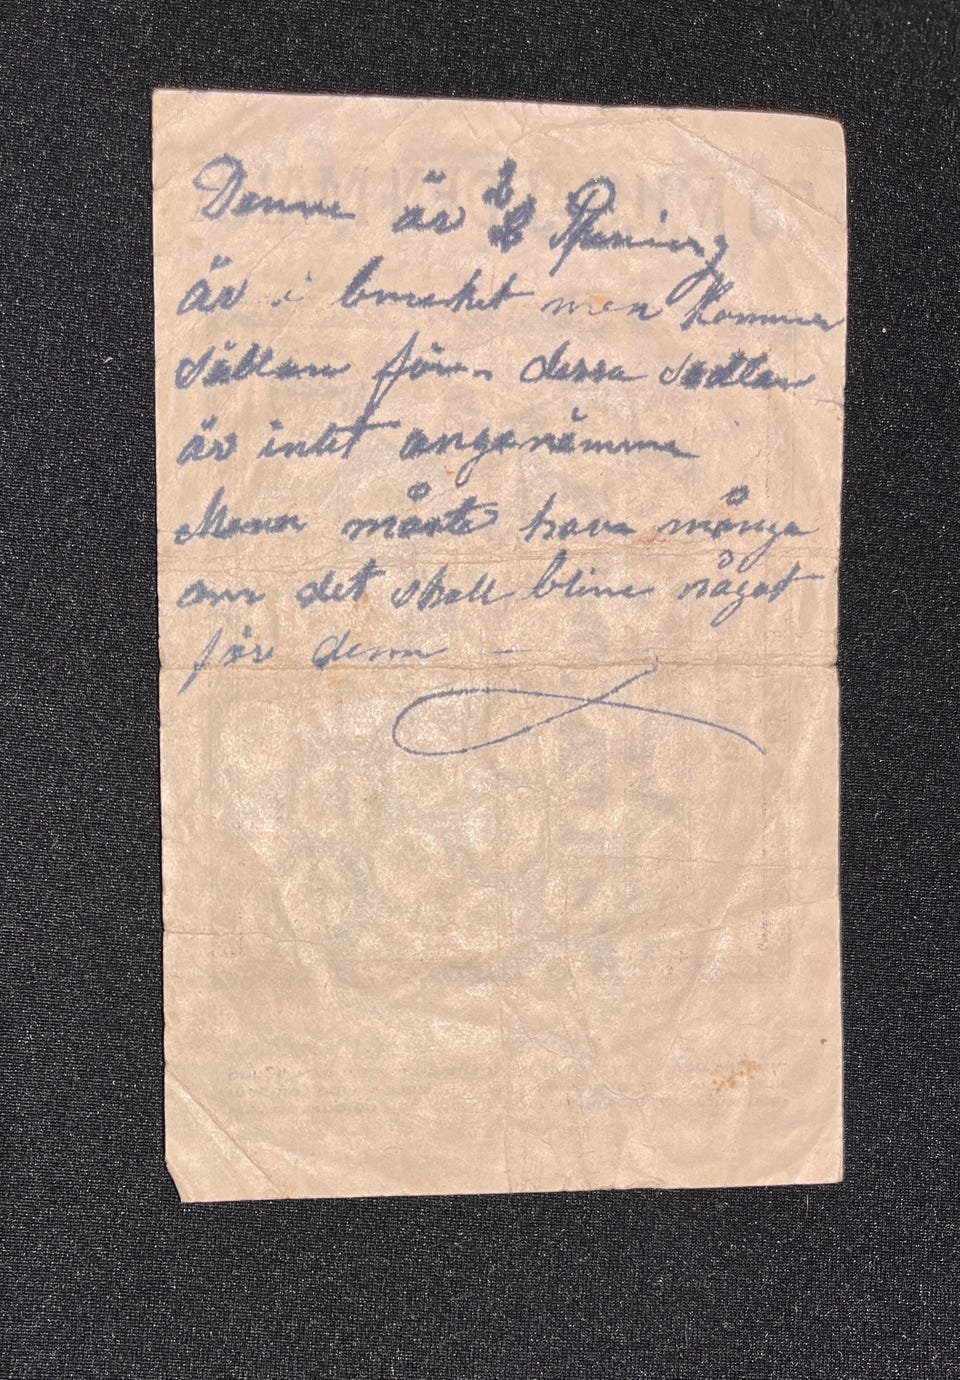 Denna är ½ Penning
är i bruket men kommer
sällan för. dessa sedlar
är intet angenämma
Man måste hava många
om det skall bliva något
före dem —